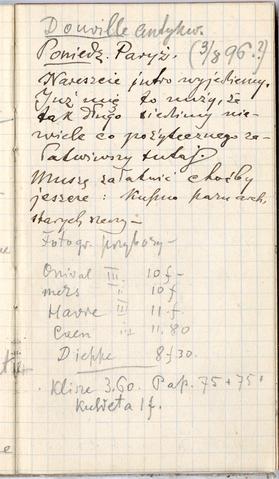 Douville antykw.
Poniedz. Paryż. (3/8 96 ?)
Nareszcie jutro wyjedziemy.
Już mię to nuży, że
tak długo siedzimy nie-
wiele co pożytecznego za-
łatwiwszy tutaj.
Muszę załatwić choćby
jeszcze: Kupno paru
starych rzeczy —
Fotogr. przybory —
Onival III. 10 f —
Mers " 10 f
Havre III 11. f
Caen 11.80
Dieppe 8 f 30.
Klisze 3.60. Pap. 75 + 75
Kobieta 1 f.